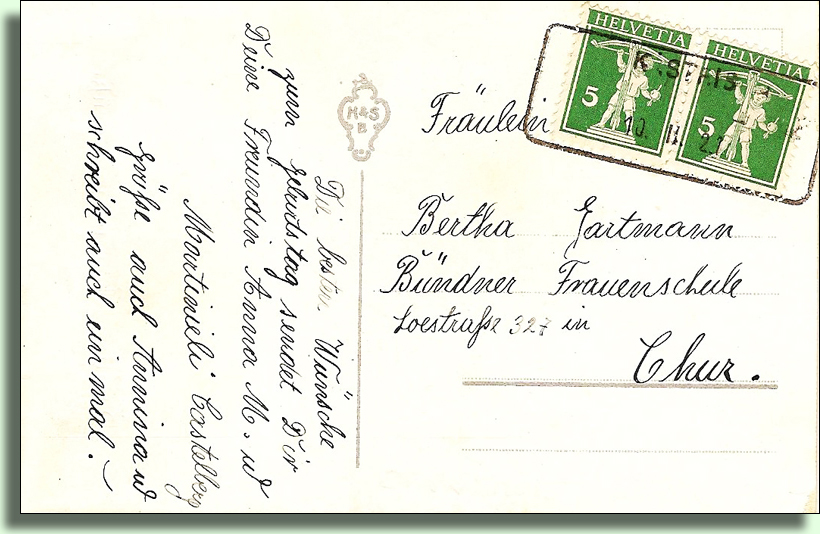 HELVETIA
HELVETIA
5
5
10. II. 21
H & S
B
Fräulein
Bertha Gartmann
Bündner Frauenschule
Loestraße 327 in
Chur.
Die besten Wünsche
zum geburtstag sendet Dir
Deine Freundin Anna M. ud
Martinieli Castelberg
grüße auch Annina ud
schreibt auch ein mal.